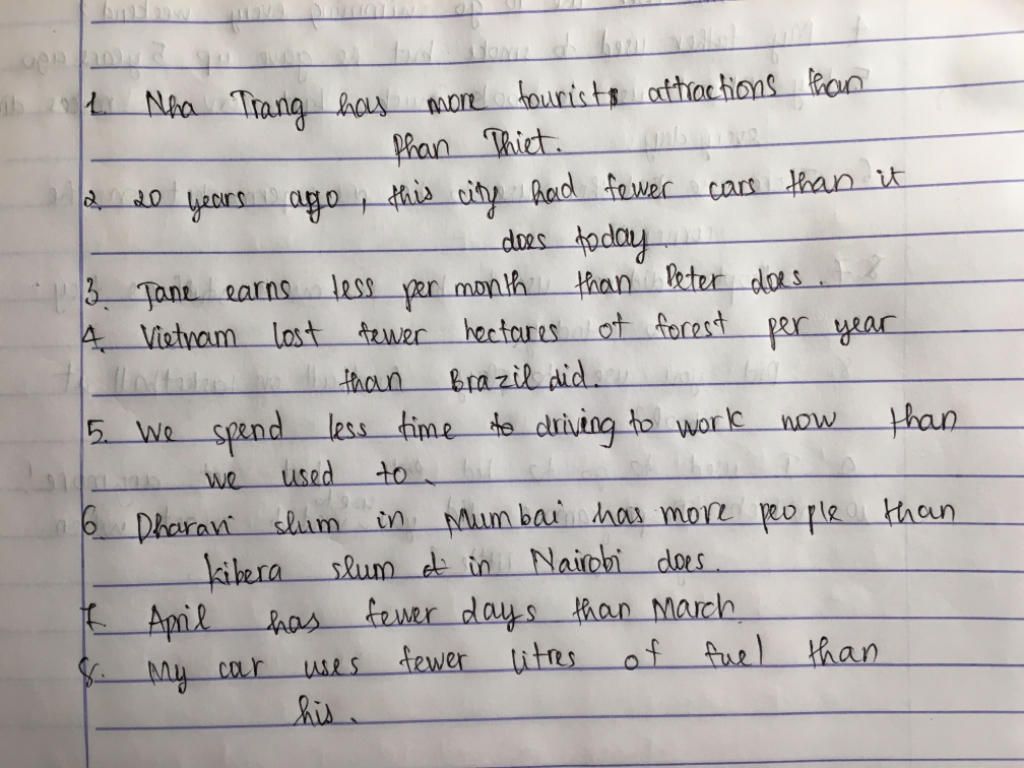 1. Nha Trang has more tourist attractions than
Phan Thiet.
2. 20 years ago, this city had fewer cars than it
does today.
3. Jane earns less per month than Peter does.
4. Vietnam lost fewer hectares of forest per year
than Brazil did.
5. We spend less time to driving to work now than
we used to.
6. Dharavi slum in Mumbai has more people than
kibera slum in Nairobi does.
7. April has fewer days than March
8. My car uses fewer litres of fuel than
his.